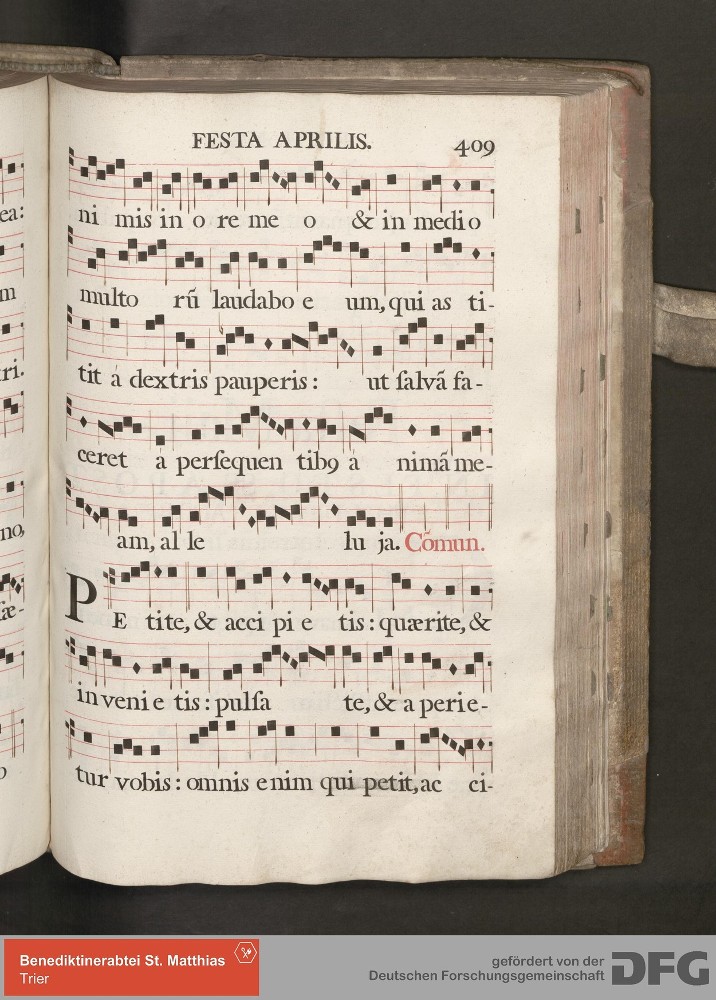 FESTA APRILIS. 409
ea:
ni mis in o re me o & in medio
m
multo rū laudabo e um, qui as ti-
tri.
tit á dextris pauperis: ut ſalvã fa-
ceret à perſequen tibꝯ à nimã me-
no,
am, al le lu ja. Cõmun.
fæ-
PE tite, & acci pi e tis: quærite, &
in veni e tis: pulſa te, & a perie-
tur vobis: omnis enim qui petit, ac ci-
Benediktinerabtei St. Matthias
Trier
gefördert von der
Deutschen Forschungsgemeinschaft DFG